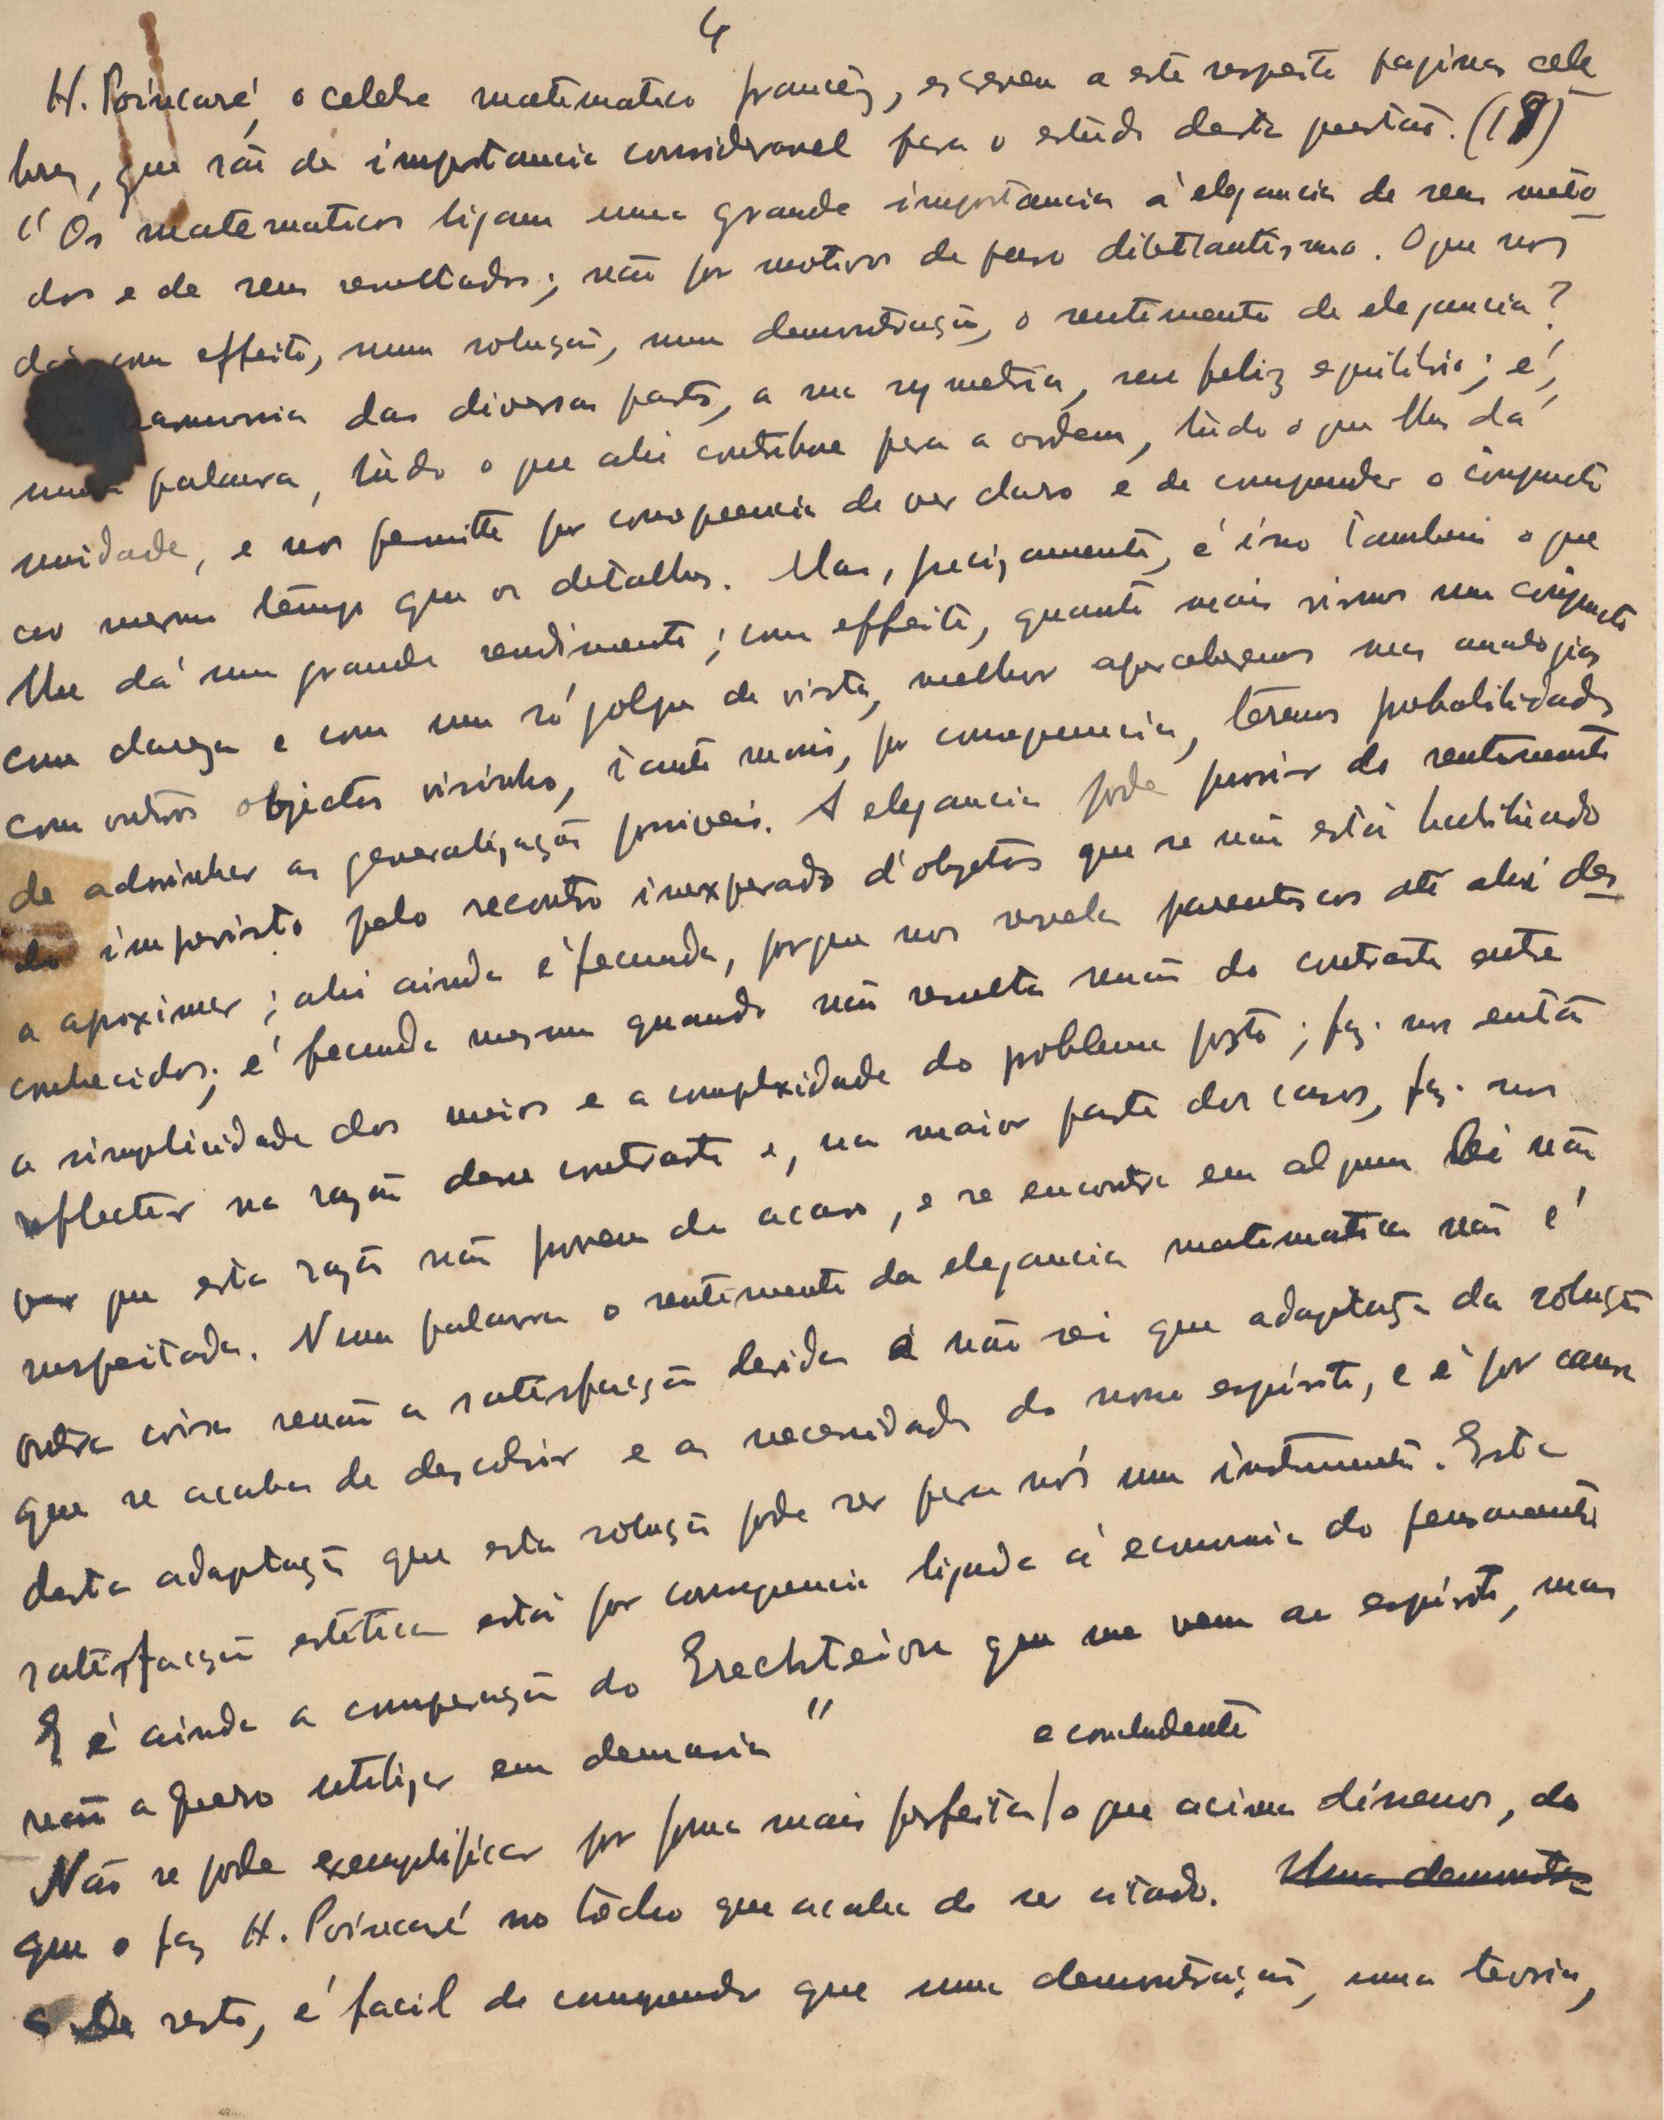 4
H. Poincaré, o celebre matematico francêz, escreveu a este respeito paginas cele
bres, que são de importancia consideravel para o estudo desta questão. (17)
"Os matematicos ligam uma grande importancia á elegancia de seus meto
dos e de seus resultados; não por motivos de puro dilettantismo. O que nos
dá com effeito, numa solução, numa demonstração, o sentimento de elegancia?
armonia das diversas partes, a sua symetria, seu feliz equilibrio; é,
numa palavra, tudo o que ahi contribue para a ordem, tudo o que lhes dá
unidade, e nos permitte por consequencia de ver claro e de comprender o conjuncto
ao mesmo tempo que os detalhes. Mas, precizamente, é isso tambem o que
lhe dá um grande rendimento; com effeito, quanto mais virmos um conjuncto
com clareza e com um só golpe de vista, melhor aperceberemos suas analogias
com outros objectos visinhos, tanto mais, por consequencia, têremos probabilidades
de adivinhar as generalizações possiveis. A elegancia pode provir do sentimento
do imprevisto pelo recontro inexperado d'objetos que se não está habituado
a aproximar; ahi ainda é fecunda, porque nos revela parentescos até ahi des
conhecidos; é fecunda mesmo quando não resulta senão do contraste entre
a simplicidade dos meios e a complexidade do problema posto; faz-nos então
reflectir na razão desse contraste e, na maior parte dos casos, faz-nos
ver que esta razão não provem do acaso, e se encontra em alguma lei não
suspeitada. Numa palavra o sentimento da elegancia matematica não é
outra coisa senão a satisfacção devida á não sei que adaptação da solução
que se acaba de descobrir e as necessidades do nosso espirito, e é por causa
desta adaptação que esta solução pode ser para nós um instrumento. Esta
satisfacção estetica está por consequencia ligada á economia do pensamento
E é ainda a comparação do Erechteion que me vem ao espirito, mas
não a quero utilizar em demasia"
e concludente
Não se pode exemplificar por forma mais perfeita/o que acima dissemos, do
que o faz H. Poincaré no trêcho que acaba de ser citado. Uma demonstra
De resto, é facil de comprender que uma demonstração, uma teoria,